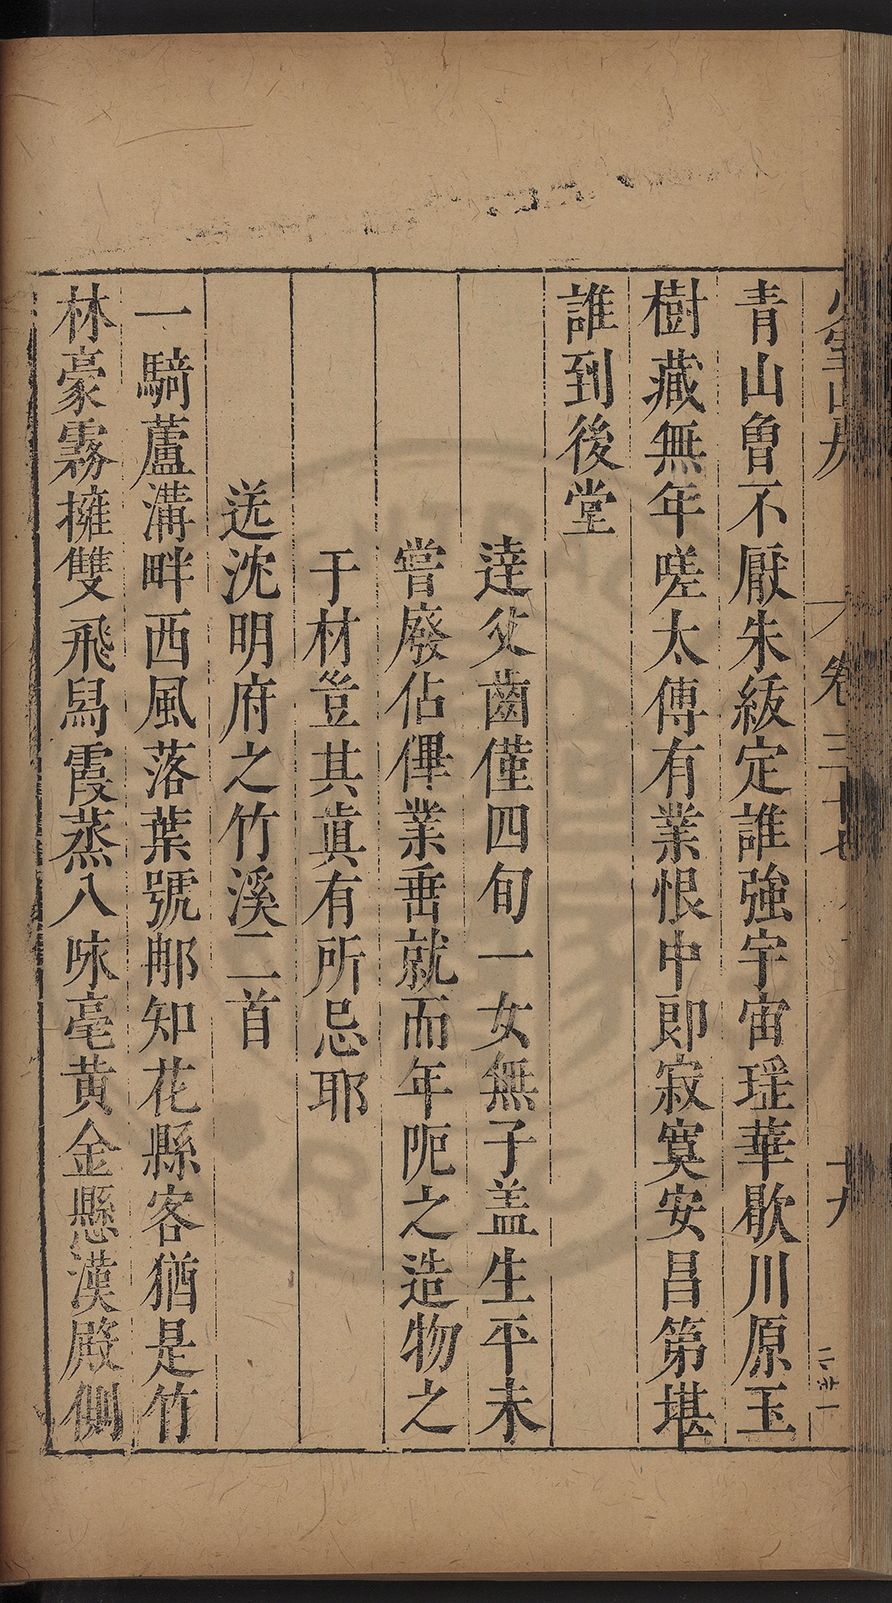 青山曾不厭朱紱定誰強宇宙瑶華歇川原玉
樹藏無年嗟太傅有業恨中郎寂寞安昌第堪
誰到後堂
逹父齒僅四旬一女無子盖生平未
嘗廢佔俾業垂就而年阨之造物之
于材豈其眞有所忌耶
送沈明府之竹溪二首
一騎蘆溝畔西風落葉號那知花縣客猶是竹
林豪霧擁雙飛舄霞蒸八咏毫黄金懸漢殿側
卷三十七
十九